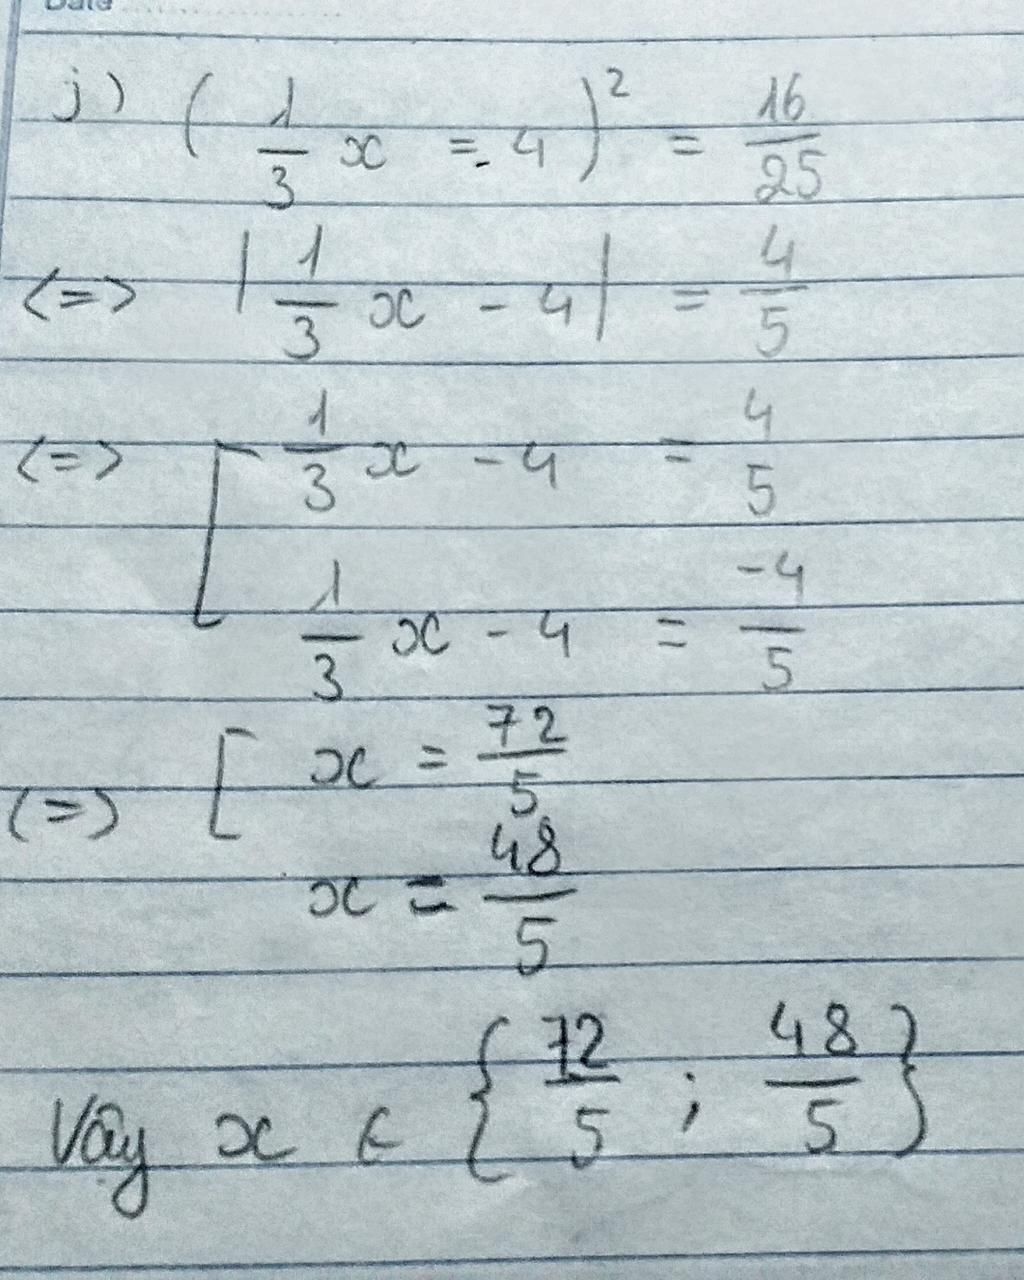 Date
j) (1/3 x =- 4)² = 16/25
<=> |1/3 x - 4| = 4/5
<=> [ 1/3 x - 4 = 4/5
1/3 x - 4 = -4/5
<=> [ x = 72/5
x = 48/5
Vậy x ∈ {72/5 ; 48/5}